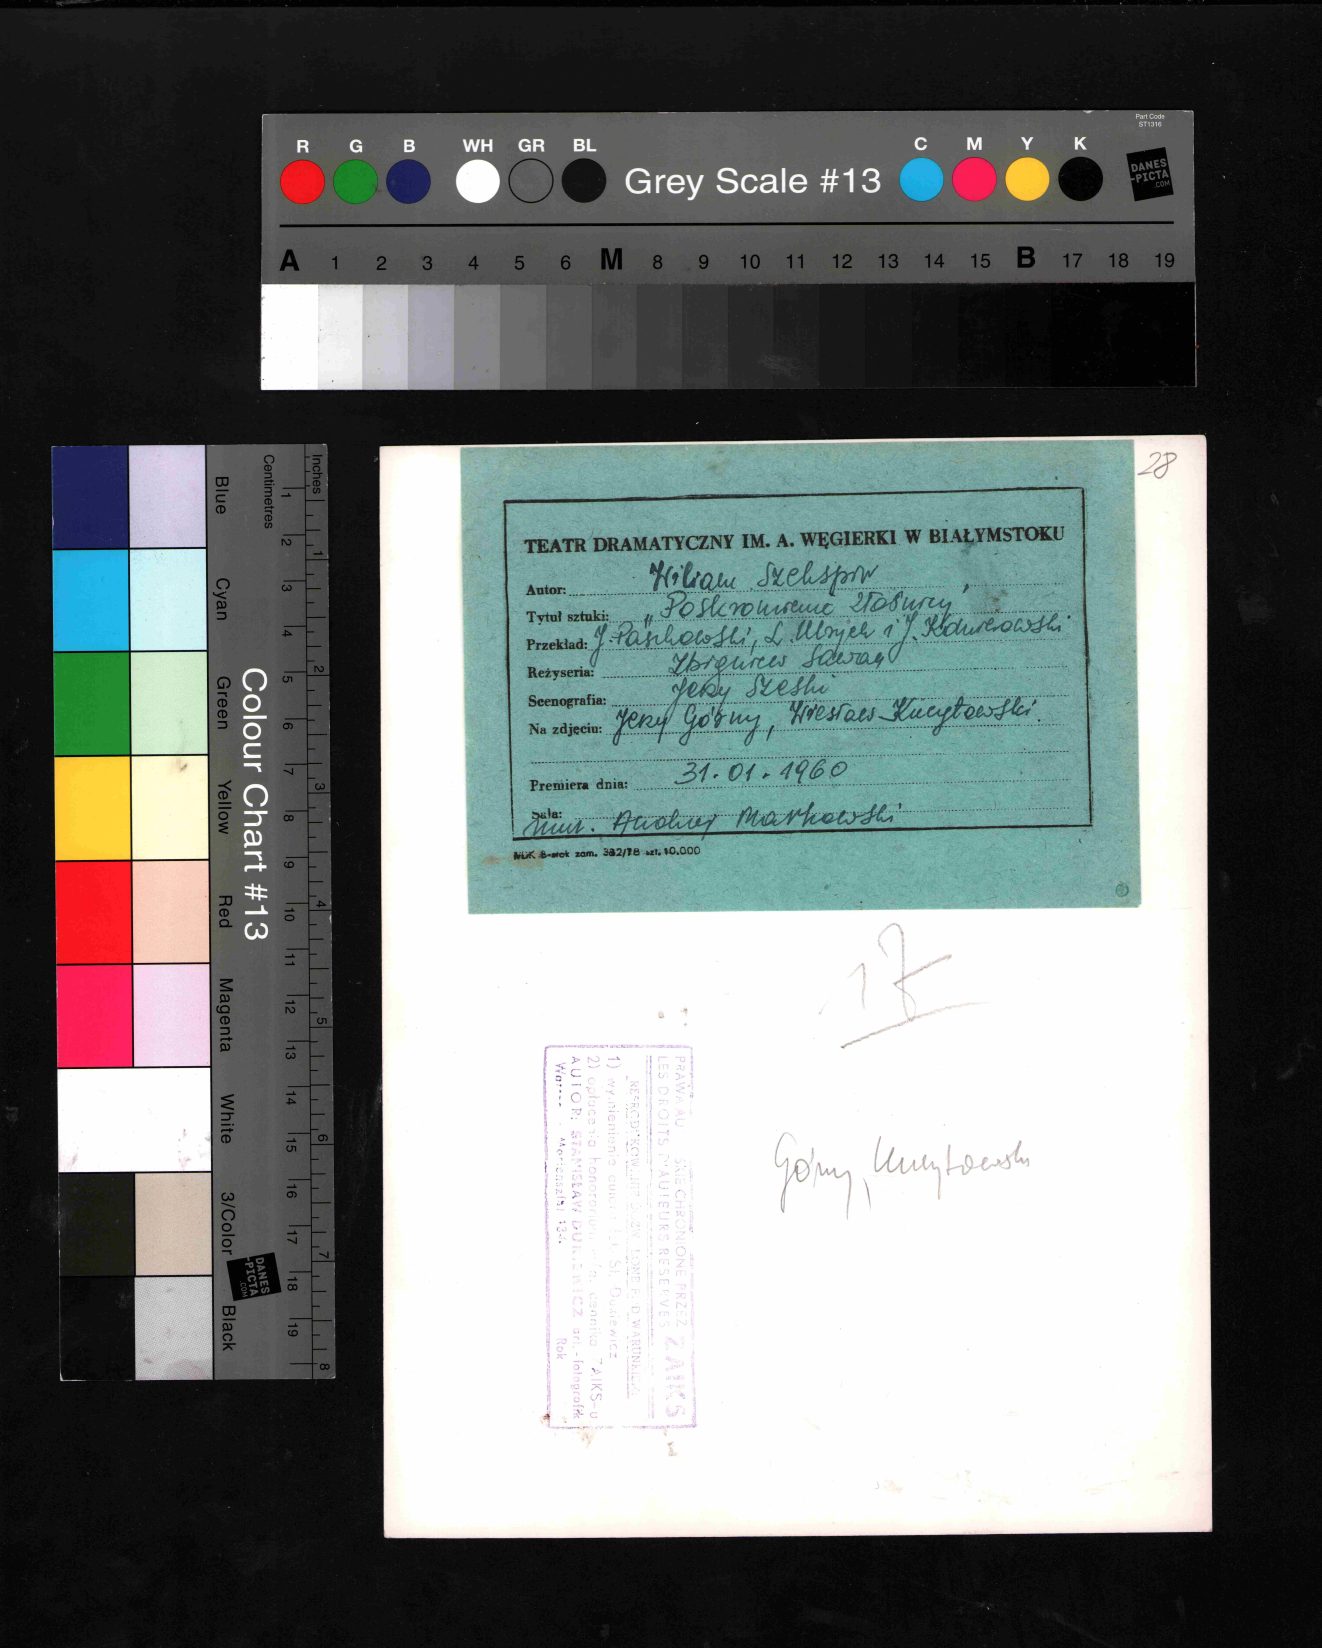 Part Code
ST1316
R G B WH GR BL Grey Scale #13 C M Y K
DANES
-PICTA
.COM
A 1 2 3 4 5 6 M 8 9 10 11 12 13 14 15 B 17 18 19
Colour Chart #13
Blue Cyan Green Yellow Red Magenta White 3/Color Black
Centimetres 1 2 3 4 5 6 7 8 9 10 11 12 13 14 15 16 17 18 19
Inches 1 2 3 4 5 6 7 8
DANES
-PICTA
.COM
28
TEATR DRAMATYCZNY IM. A. WĘGIERKI W BIAŁYMSTOKU
Autor: Wiliam Szekspir
Tytuł sztuki: „Poskromienie złośnicy"
Przekład: J. Paszkowski, L. Ulrych i J. Kdwierowski
Reżyseria: Zbigniew Sawan
Scenografia: Jerzy Szeski
Na zdjęciu: Jerzy Górny, Wiesław Kucytowski.
Premiera dnia: 31.01.1960
Sala:
muz. Andrzej Markowski
MDK B-stok zam. 382/78 szt. 10.000
17
Górny, Kucytowski
PRAWA AU CHRONIONE PRZEZ
LES DROITS D'AUTEURS RESERVES ZAIKS
WARUNKIEM
1) wymienienia autora St. Dusiewicz
2) opłacenia honorarium cennika ZAIKS-u
AUTOR: STANISŁAW art.-fotografik
Mariensztat Rok